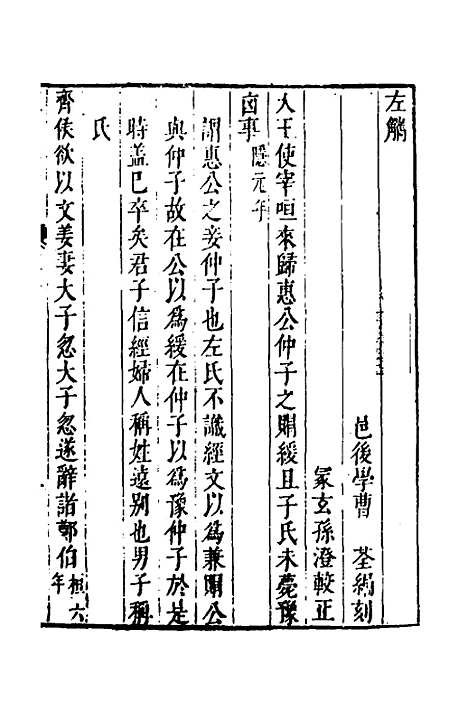 左觿
邑後學曹荃編刻
冢玄孫澄較正
人王使宰咺來歸惠公仲子之賵緩且子氏未薨豫
凶事隱元年
謂惠公之妾仲子也左氏不識經文以爲兼賵公
與仲子故在公以爲緩在仲子以爲豫仲子於是
時蓋已卒矣君子信經婦人稱姓遠别也男子稱
氏
齊侯欲以文姜妻大子忽大子忽遂辭諸鄭伯桓六年